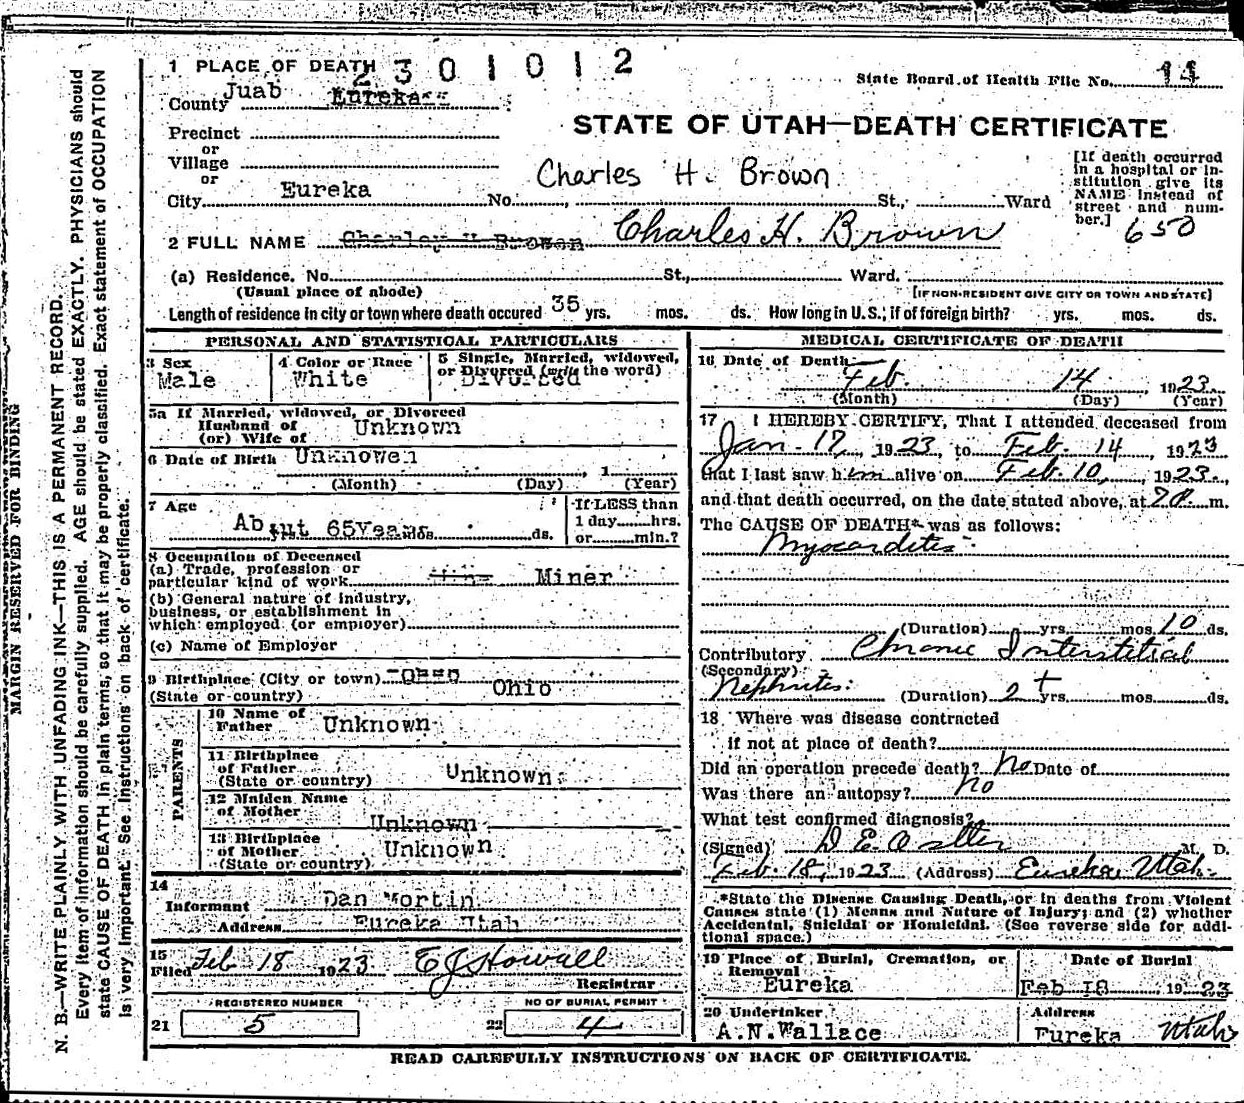 1 PLACE OF DEATH 2301012
State Board of Health File No. 11
County Juab Eureka
STATE OF UTAH—DEATH CERTIFICATE
Precinct
or
Village
or
City Eureka No. St., Ward
Charles H. Brown
[If death occurred
in a hospital or in-
stitution give its
NAME instead of
street and num-
ber.] 650
2 FULL NAME Charley H Browen Charles H. Brown
(a) Residence, No. St., Ward.
(Usual place of abode) [IF NON-RESIDENT GIVE CITY OR TOWN AND STATE]
Length of residence in city or town where death occured 35 yrs. mos. ds. How long in U. S.; if of foreign birth? yrs. mos. ds.
PERSONAL AND STATISTICAL PARTICULARS
3 Sex
Male
4 Color or Race
White
5 Single, Married, widowed,
or Divorced (write the word)
Divorced
5a If Married, widowed, or Divorced
Husband of
(or) Wife of Unknown
6 Date of Birth Unknowen , 1
(Month) (Day) (Year)
7 Age
About 65 Years mos ds.
If LESS than
1 day hrs.
or min.?
8 Occupation of Deceased
(a) Trade, profession or
particular kind of work Mine Miner
(b) General nature of industry,
business, or establishment in
which employed (or employer)
(c) Name of Employer
9 Birthplace (City or town)
(State or country) Ohio
PARENTS
10 Name of
Father Unknown
11 Birthplace
of Father
(State or country) Unknown
12 Maiden Name
of Mother
Unknown
13 Birthplace
of Mother
(State or country) Unknown
14
Informant Dan Mortin
Address Eureka Utah
15
Filed Feb 18 1923 E J Howell
Registrar
REGISTERED NUMBER
21 5
NO OF BURIAL PERMIT
22 4
MEDICAL CERTIFICATE OF DEATH
16 Date of Death
Feb. 14 1923
(Month) (Day) (Year)
17 I HEREBY CERTIFY, That I attended deceased from
Jan - 17, 1923, to Feb. 14, 1923
that I last saw him alive on Feb. 10, 1923,
and that death occurred, on the date stated above, at m.
The CAUSE OF DEATH* was as follows:
Myocarditis
(Duration) yrs mos 10 ds.
Contributory Chronic Interstitial
(Secondary)
Nephritis. (Duration) 2+ yrs. mos. ds.
18 Where was disease contracted
if not at place of death?
Did an operation precede death? No Date of
Was there an autopsy? No
What test confirmed diagnosis?
(Signed) M. D.
Feb. 18, 1923 (Address) Eureka Utah.
*State the Disease Causing Death, or in deaths from Violent
Causes state (1) Means and Nature of Injury; and (2) whether
Accidental, Suicidal or Homicidal. (See reverse side for addi-
tional space.)
19 Place of Burial, Cremation, or
Removal
Eureka
Date of Burial
Feb 18, 1923
20 Undertaker
A.N.Wallace
Address
Eureka Utah
READ CAREFULLY INSTRUCTIONS ON BACK OF CERTIFICATE.
MARGIN RESERVED FOR BINDING
N. B.—WRITE PLAINLY WITH UNFADING INK—THIS IS A PERMANENT RECORD.
Every item of information should be carefully supplied. AGE should be stated EXACTLY. PHYSICIANS should
state CAUSE OF DEATH in plain terms, so that it may be properly classified. Exact statement of OCCUPATION
is very important. See instructions on back of certificate.